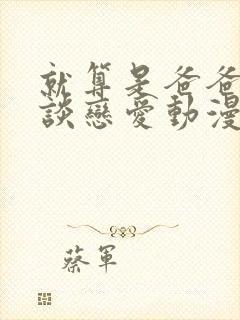 就算是爸爸
談戀愛動漫
蔡軍